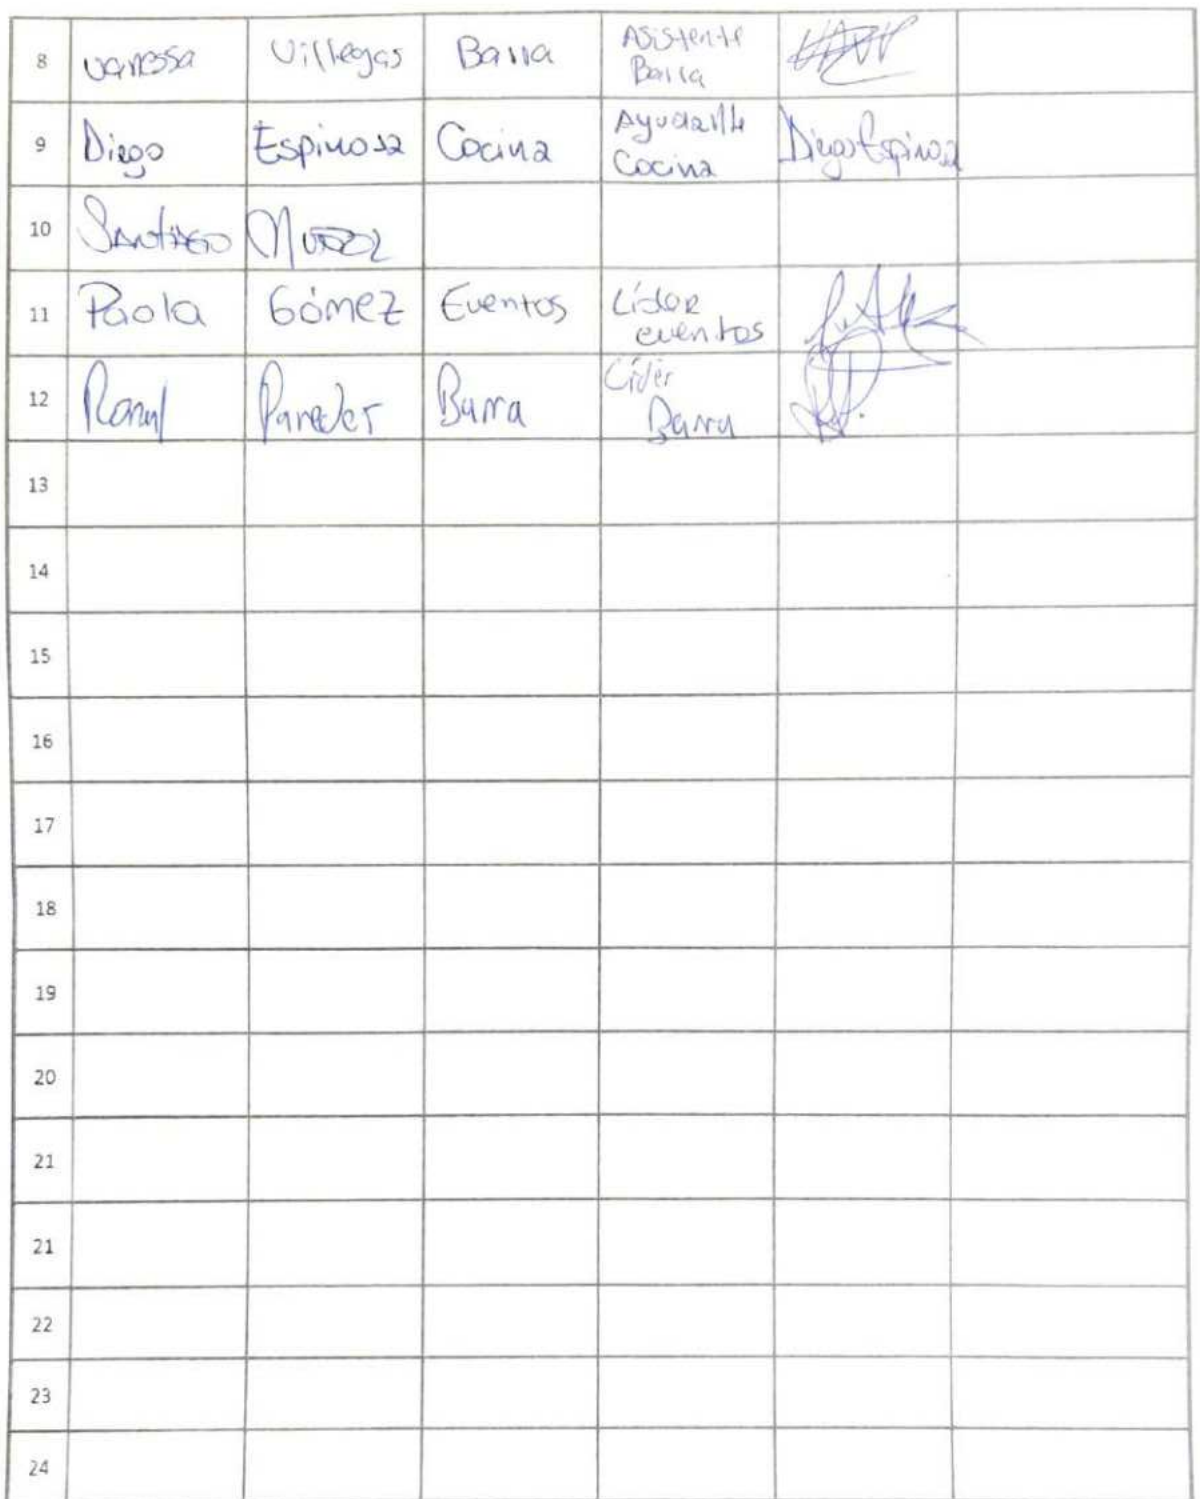 8 Vanessa Villegas Barra Asistente Barra
9 Diego Espinosa Cocina Ayudante Cocina Diego Espinosa
10 Santiago Muñoz
11 Paola Gómez Eventos Líder eventos
12 Paredes Barra Líder Barra
13
14
15
16
17
18
19
20
21
21
22
23
24